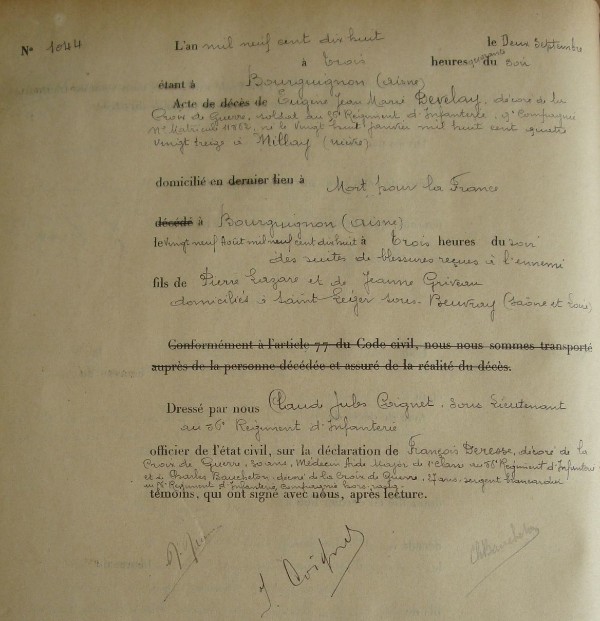 N° 1044 L'an mil neuf cent dix huit le Deux Septembre
à trois heures quarante du soir
étant à Bourguignon (Aisne)
Acte de décès de Eugène Jean Marie Develay, décoré de la
Croix de Guerre, soldat au 56e Régiment d'Infanterie, 9e Compagnie
N° Matricule 11862, né le vingt huit janvier mil huit cent quatre
vingt treize à Millay (nièvre)
domicilié en dernier lieu à Mort pour la France
décédé à Bourguignon (Aisne)
le vingt neuf Août mil neuf cent dix huit à trois heures du soir
des suites de blessures reçues à l'ennemi
fils de Pierre Lazare et de Jeanne Griveau
domiciliés à Saint Léger sous Beuvray (Saône et Loire)
Conformément à l'article 77 du Code civil, nous nous sommes transporté
auprès de la personne décédée et assuré de la réalité du décès.
Dressé par nous Claud Jules Coignet, Sous Lieutenant
au 56e Régiment d'Infanterie
officier de l'état civil, sur la déclaration de François Deresse, décoré de la
Croix de Guerre, 30 ans, Médecin Aide Major de 1e Classe au 56e Régiment d'Infanterie
et de Charles Baucheton, décoré de la Croix de Guerre, 27 ans, sergent brancardier
au 56e Régiment d'Infanterie, Compagnie hors rang
témoins, qui ont signé avec nous, après lecture.
J. Coignet
Ch Baucheton